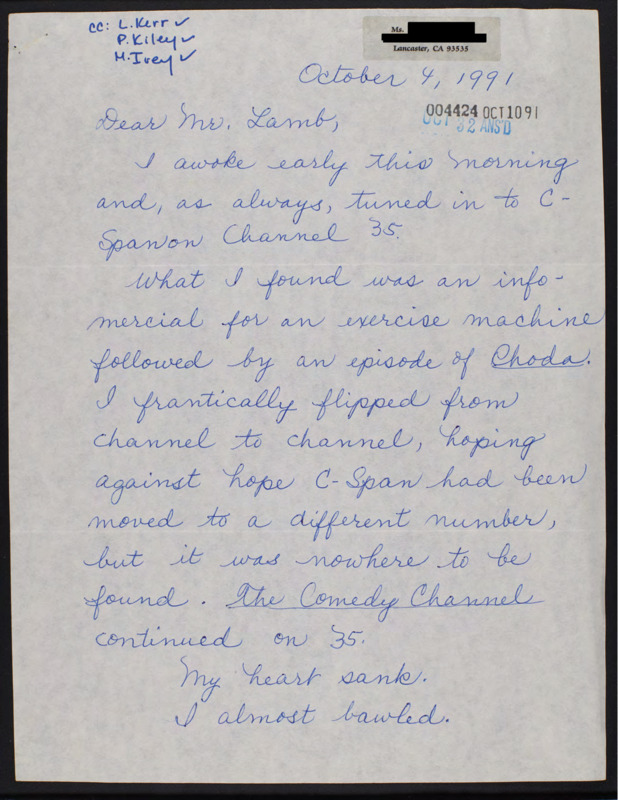 cc: L. Kerr ✓
P. Kiley ✓
M. Ivey ✓
Ms.
Lancaster, CA 93535
October 4, 1991
004424 OCT1091
ANS'D
Dear Mr. Lamb,
I awoke early this morning
and, as always, tuned in to C-
Span on Channel 35.
What I found was an info-
mercial for an exercise machine
followed by an episode of Rhoda.
I frantically flipped from
channel to channel, hoping
against hope C-Span had been
moved to a different number,
but it was nowhere to be
found. The Comedy Channel
continued on 35.
My heart sank.
I almost bawled.